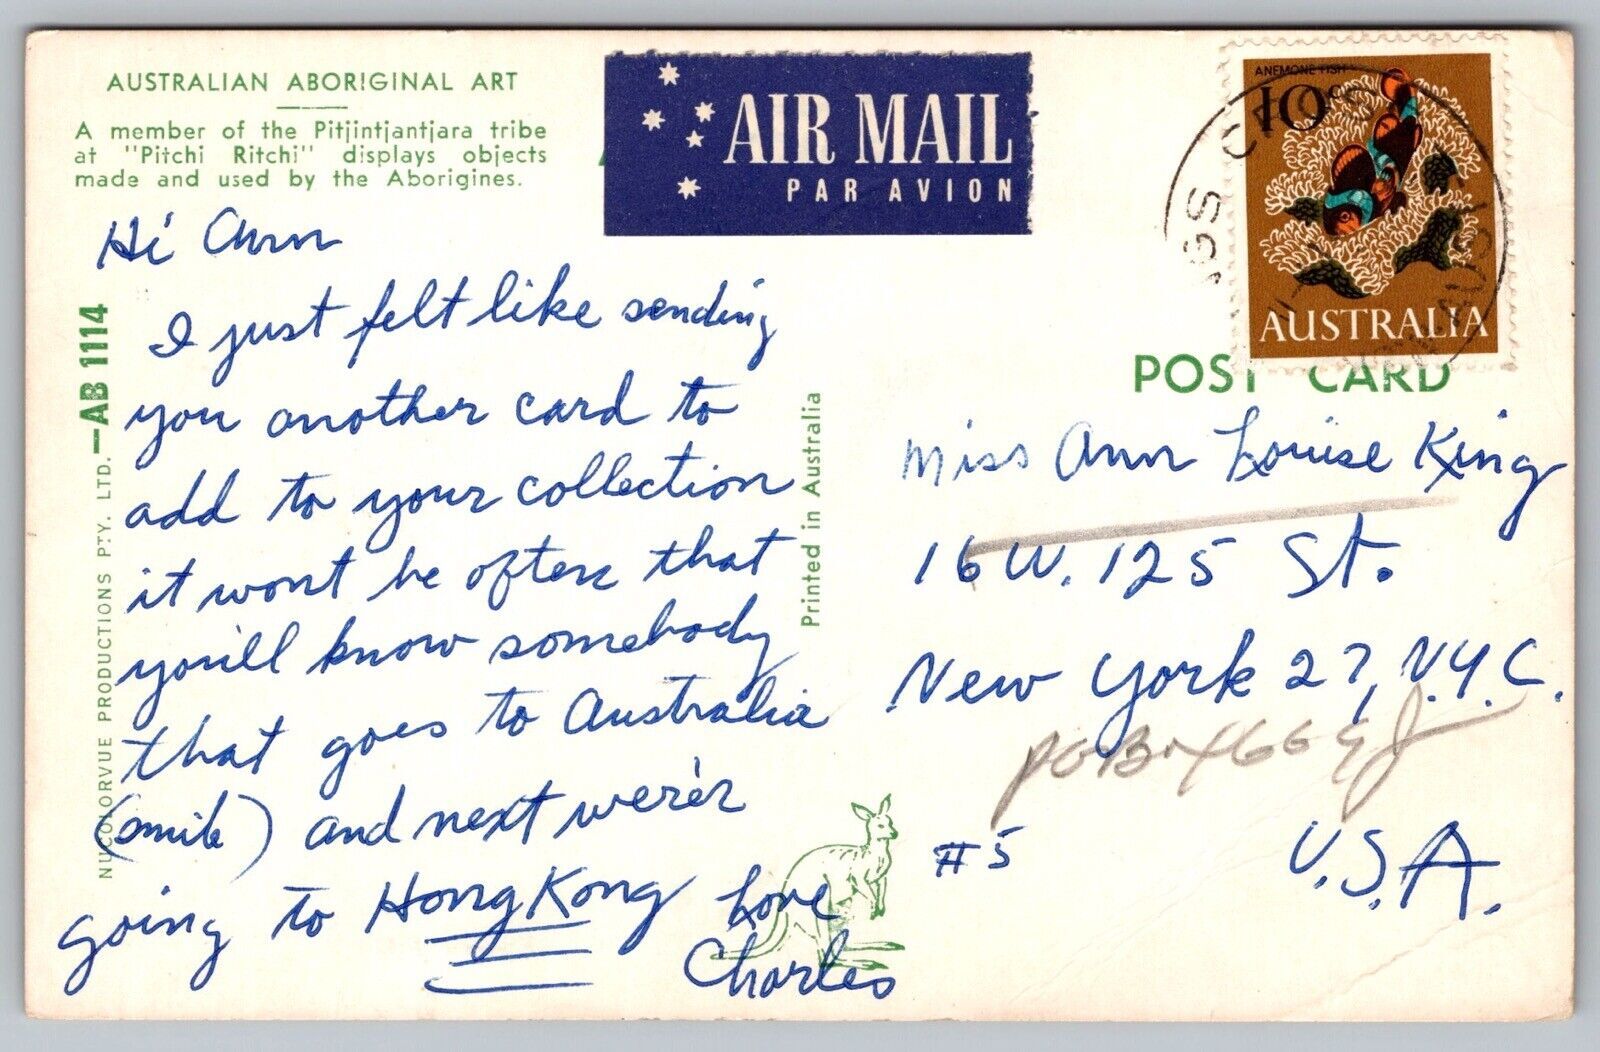 AUSTRALIAN ABORIGINAL ART
A member of the Pitjintjantjara tribe
at "Pitchi Ritchi" displays objects
made and used by the Aborigines.
AIR MAIL
PAR AVION
ANEMONE FISH
10c
AUSTRALIA
Hi Ann
I just felt like sending
you another card to
add to your collection
it wont be often that
you'll know somebody
that goes to Australia
(smile) and next we're'r
going to Hong Kong Love
Charles
NUCOLORVUE PRODUCTIONS PTY. LTD.—AB 1114
Printed in Australia
POST CARD
Miss Ann Louise King
16 W. 125 St.
New York 27, N.Y.C.
POBox 466
#5
U.S.A.